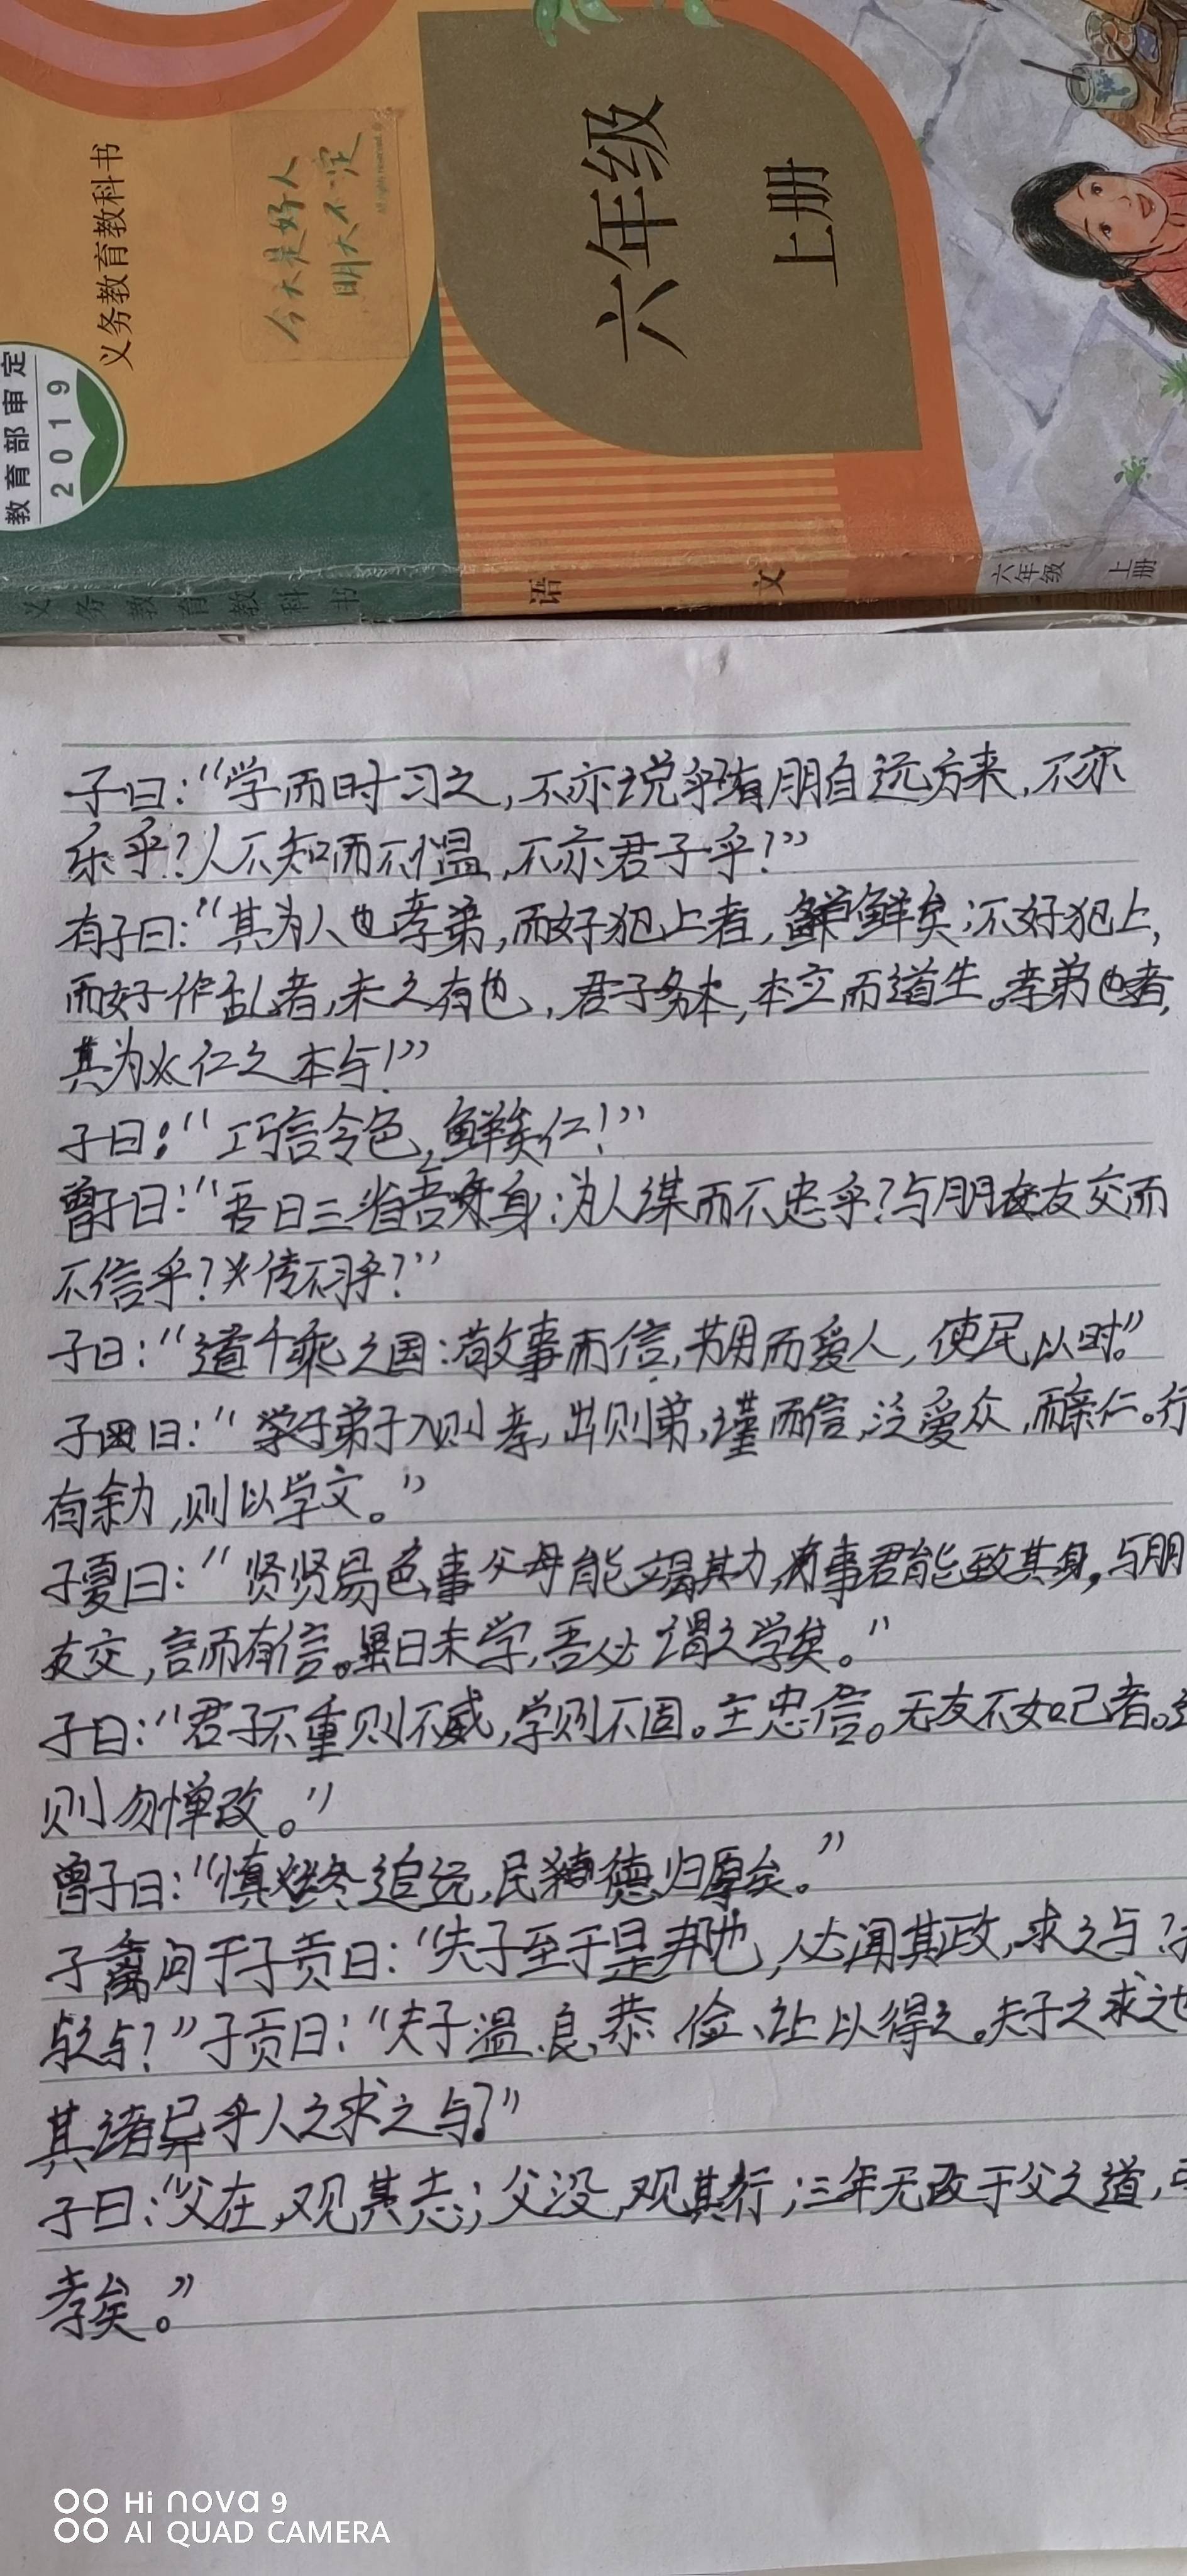 义务教育教科书
教育部审定
2019
今天是好人
明天不一定
All rights reserved.
六年级
上册
义务教育教科书
语文
六年级
上册
子曰：“学而时习之，不亦说乎有朋自远方来，不亦
乐乎？人不知而不愠，不亦君子乎？”
有子曰：“其为人也孝弟，而好犯上者，鲜矣；不好犯上，
而好作乱者，未之有也，君子务本，本立而道生。孝弟也者，
其为仁之本与！”
子曰：“巧言令色，鲜矣仁！”
曾子曰：“吾日三省吾身：为人谋而不忠乎？与朋友交而
不信乎？传不习乎？”
子曰：“道千乘之国：敬事而信，节用而爱人，使民以时。”
子曰：“弟子入则孝，出则弟，谨而信，泛爱众，而亲仁。行
有余力，则以学文。”
子夏曰：“贤贤易色，事父母能竭其力，事君能致其身，与朋
友交，言而有信。虽曰未学，吾必谓之学矣。”
子曰：“君子不重则不威，学则不固。主忠信。无友不如己者。
则勿惮改。”
曾子曰：“慎终追远，民德归厚矣。”
子禽问于子贡曰：“夫子至于是邦也，必闻其政，求之与？
与之与？”子贡曰：“夫子温、良、恭、俭、让以得之。夫子之求之也
其诸异乎人之求之与？”
子曰：“父在，观其志；父没，观其行；三年无改于父之道，
孝矣。”
Hi nova 9
AI QUAD CAMERA